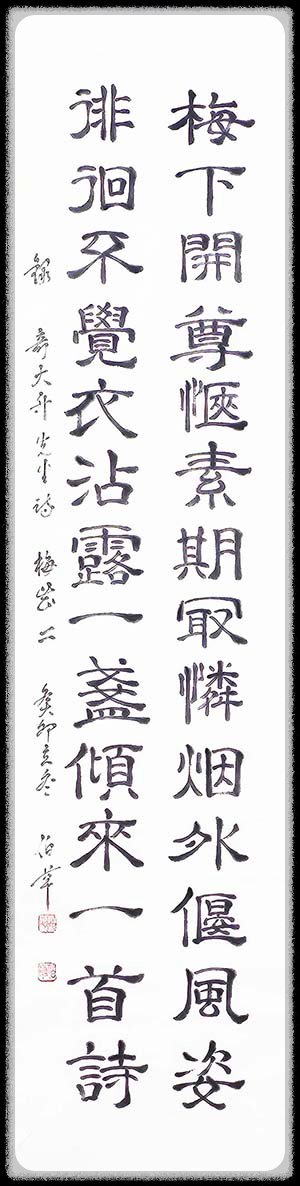 梅下開尊愜素期冣憐烟外偃風姿
徘徊不覺衣沾露一盞傾來一首詩
錄 奇大升先生詩 梅花二 癸卯立冬